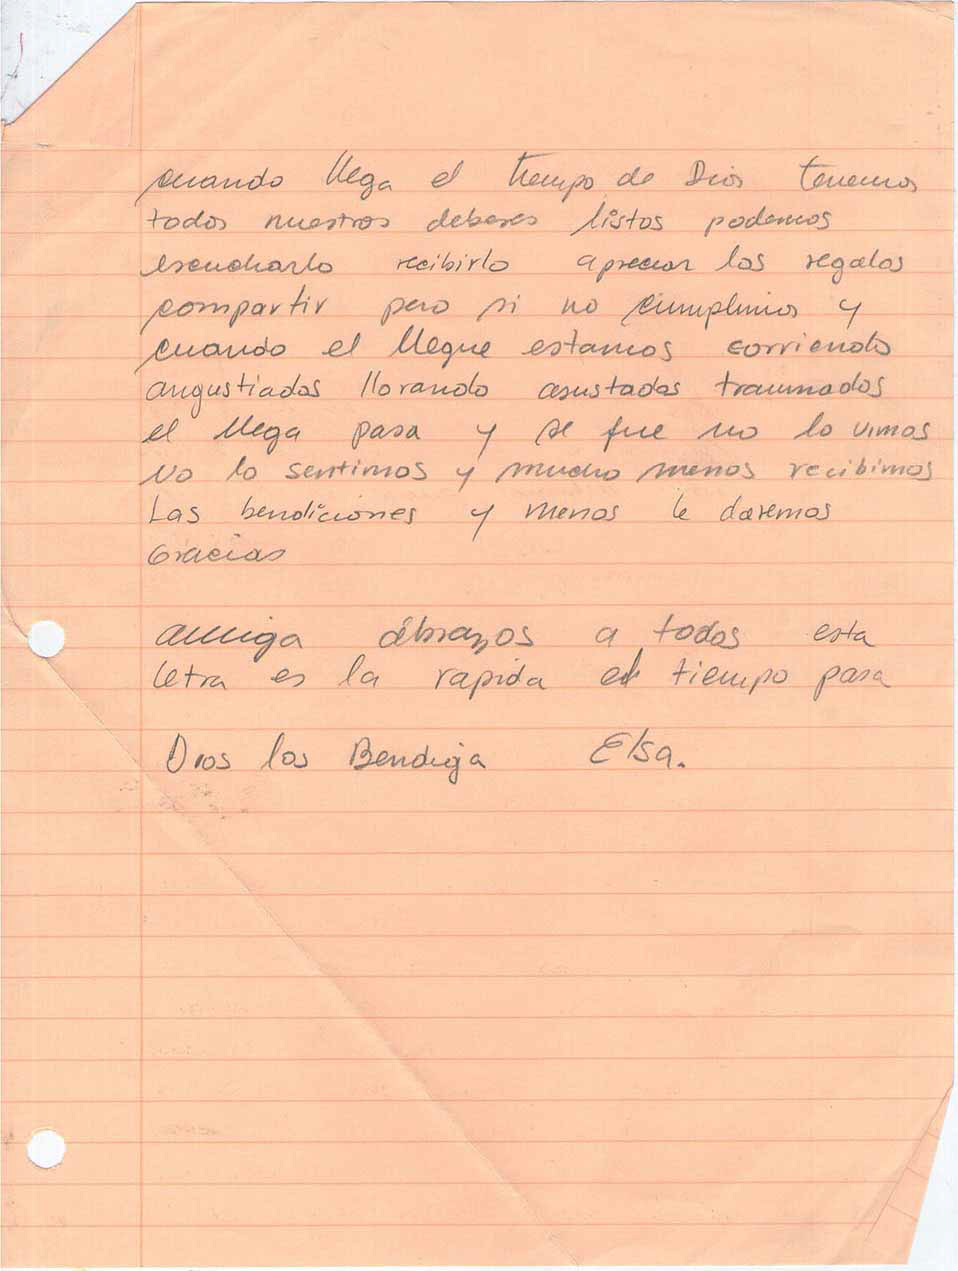 cuando llega el tiempo de Dios tenemos
todos nuestros deberes listos podemos
escucharlo recibirlo apreciar los regalos
compartir pero si no cumplimos y
cuando el llegue estamos corriendo
angustiados llorando asustados traumados
el llega pasa y se fue no lo vimos
no lo sentimos y mucho menos recibimos
Las bendiciones y menos le daremos
Gracias
amiga abrazos a todos esta
letra es la rapida el tiempo pasa
Dios los Bendiga Elsa.